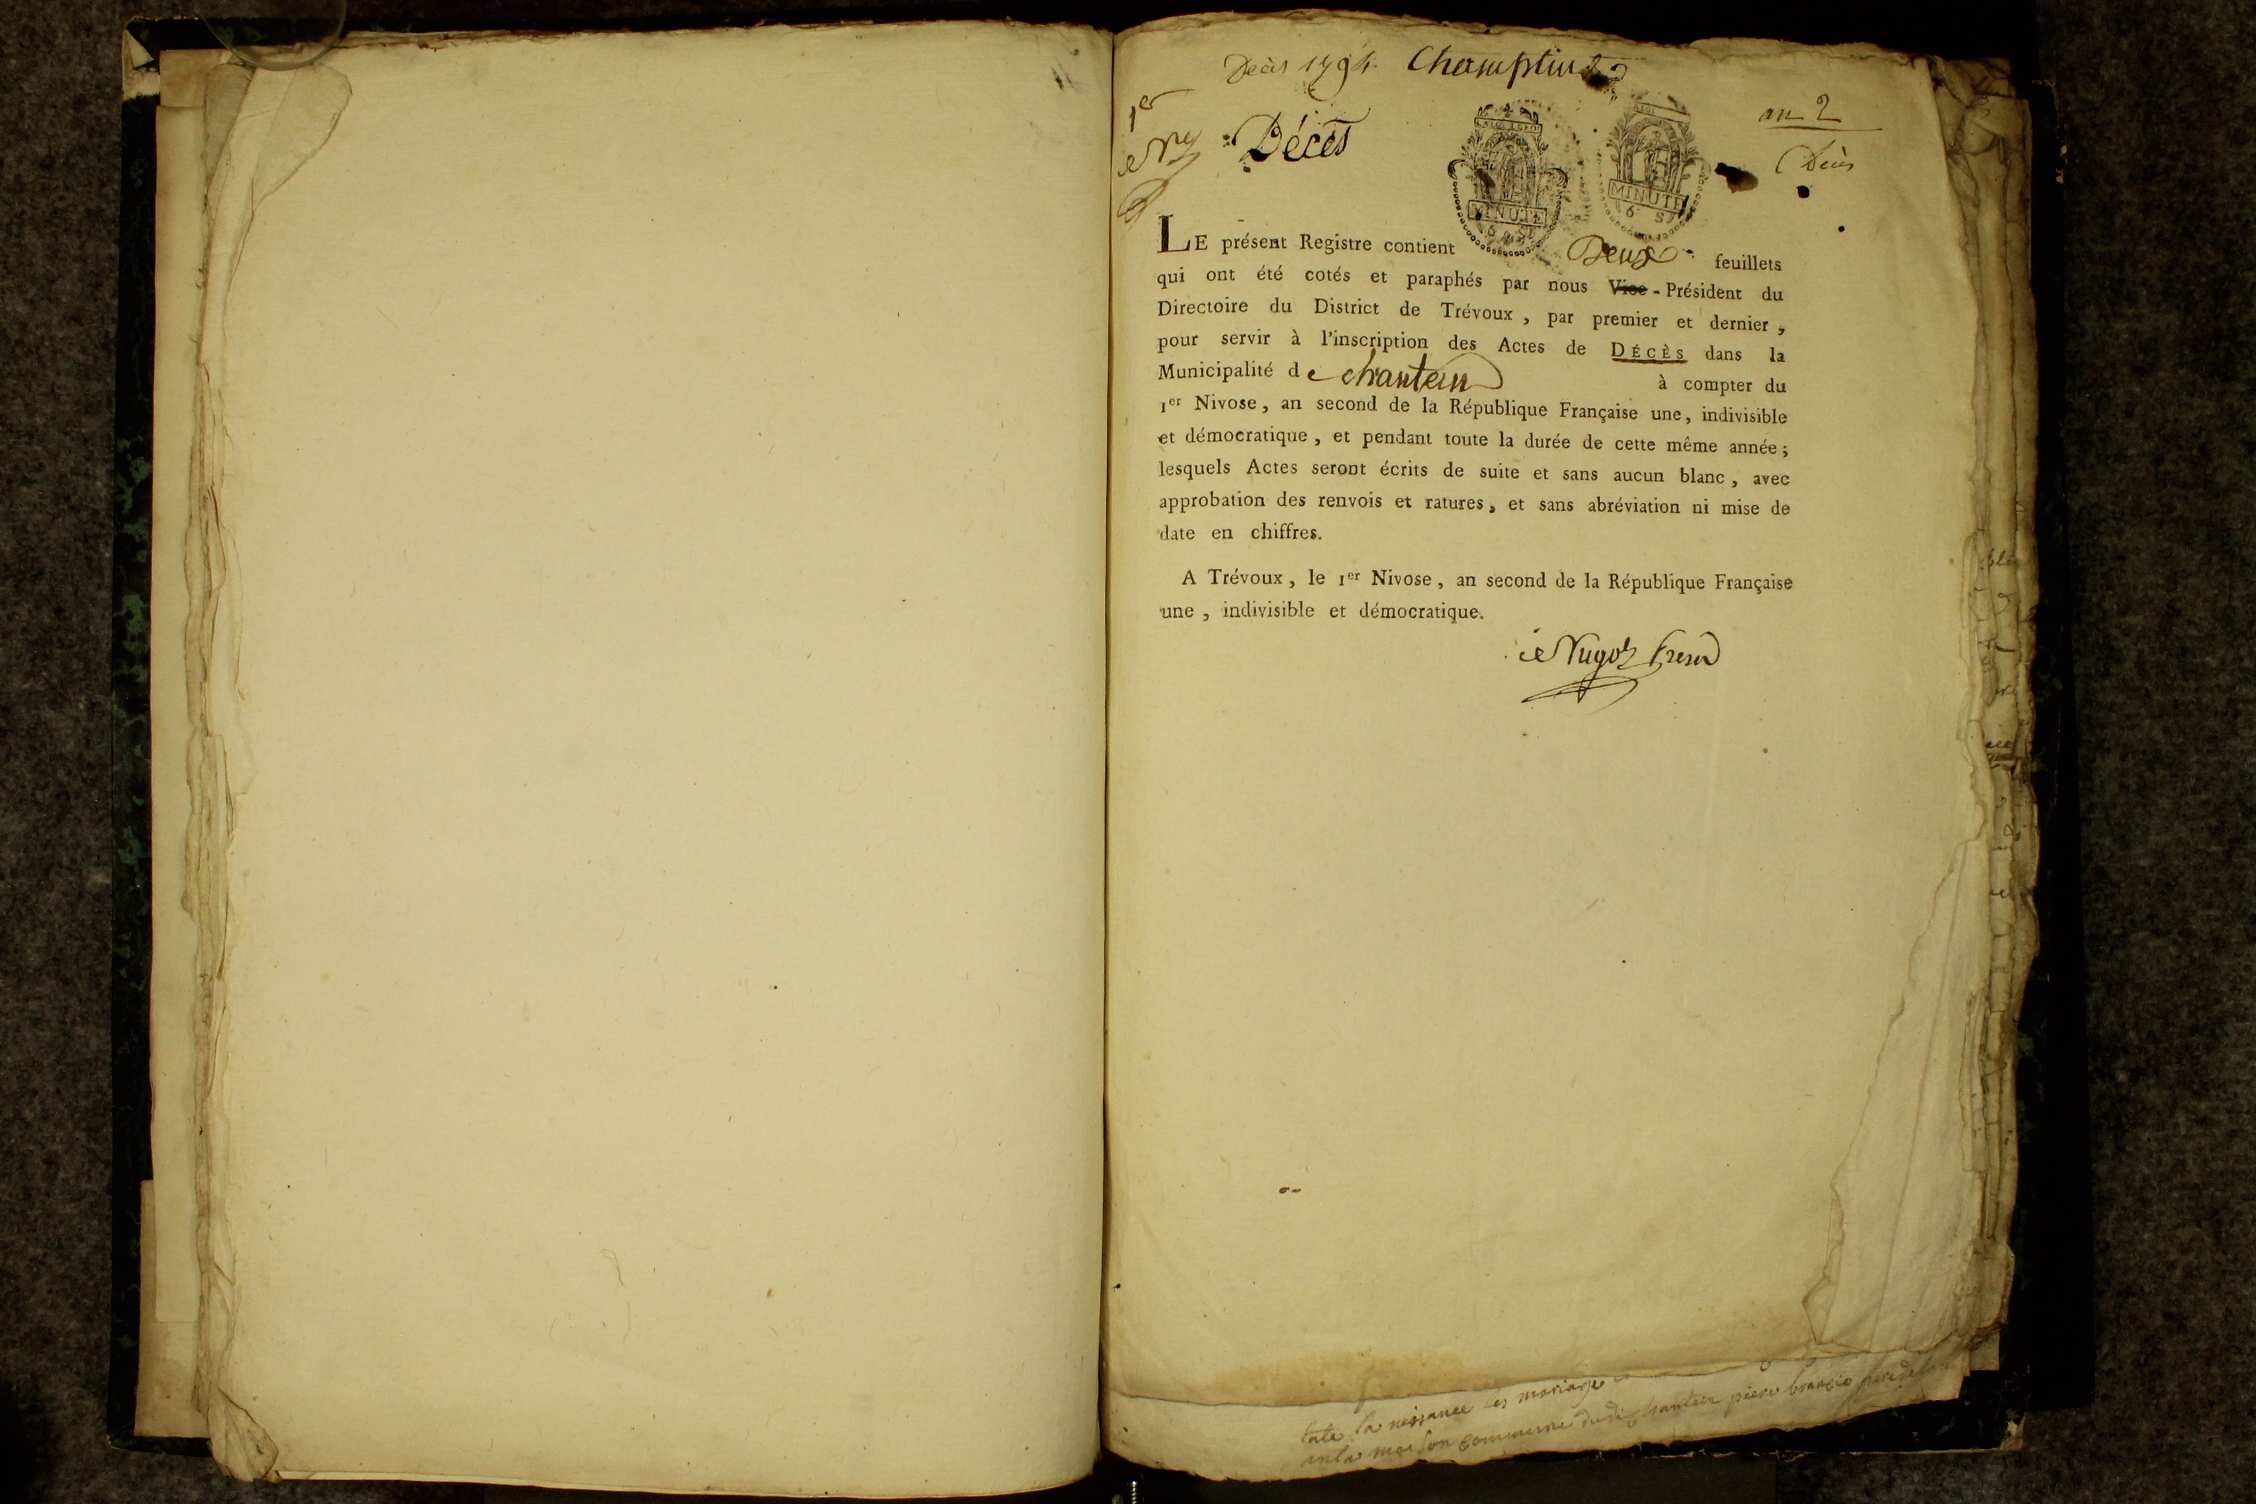 Decès 1794 Champtein
1er
an 2
Décès
Decès
MINUTE
6 S
MINUTE
6 S
LE présent Registre contient Deux feuillets
qui ont été cotés et paraphés par nous Vice-Président du
Directoire du District de Trévoux, par premier et dernier,
pour servir à l'inscription des Actes de DÉCÈS dans la
Municipalité de chantein à compter du
1er Nivose, an second de la République Française une, indivisible
et démocratique, et pendant toute la durée de cette même année;
lesquels Actes seront écrits de suite et sans aucun blanc, avec
approbation des renvois et ratures, et sans abréviation ni mise de
date en chiffres.
A Trévoux, le 1er Nivose, an second de la République Française
une, indivisible et démocratique.
la neissance les mariage
commune dudi chantein piere